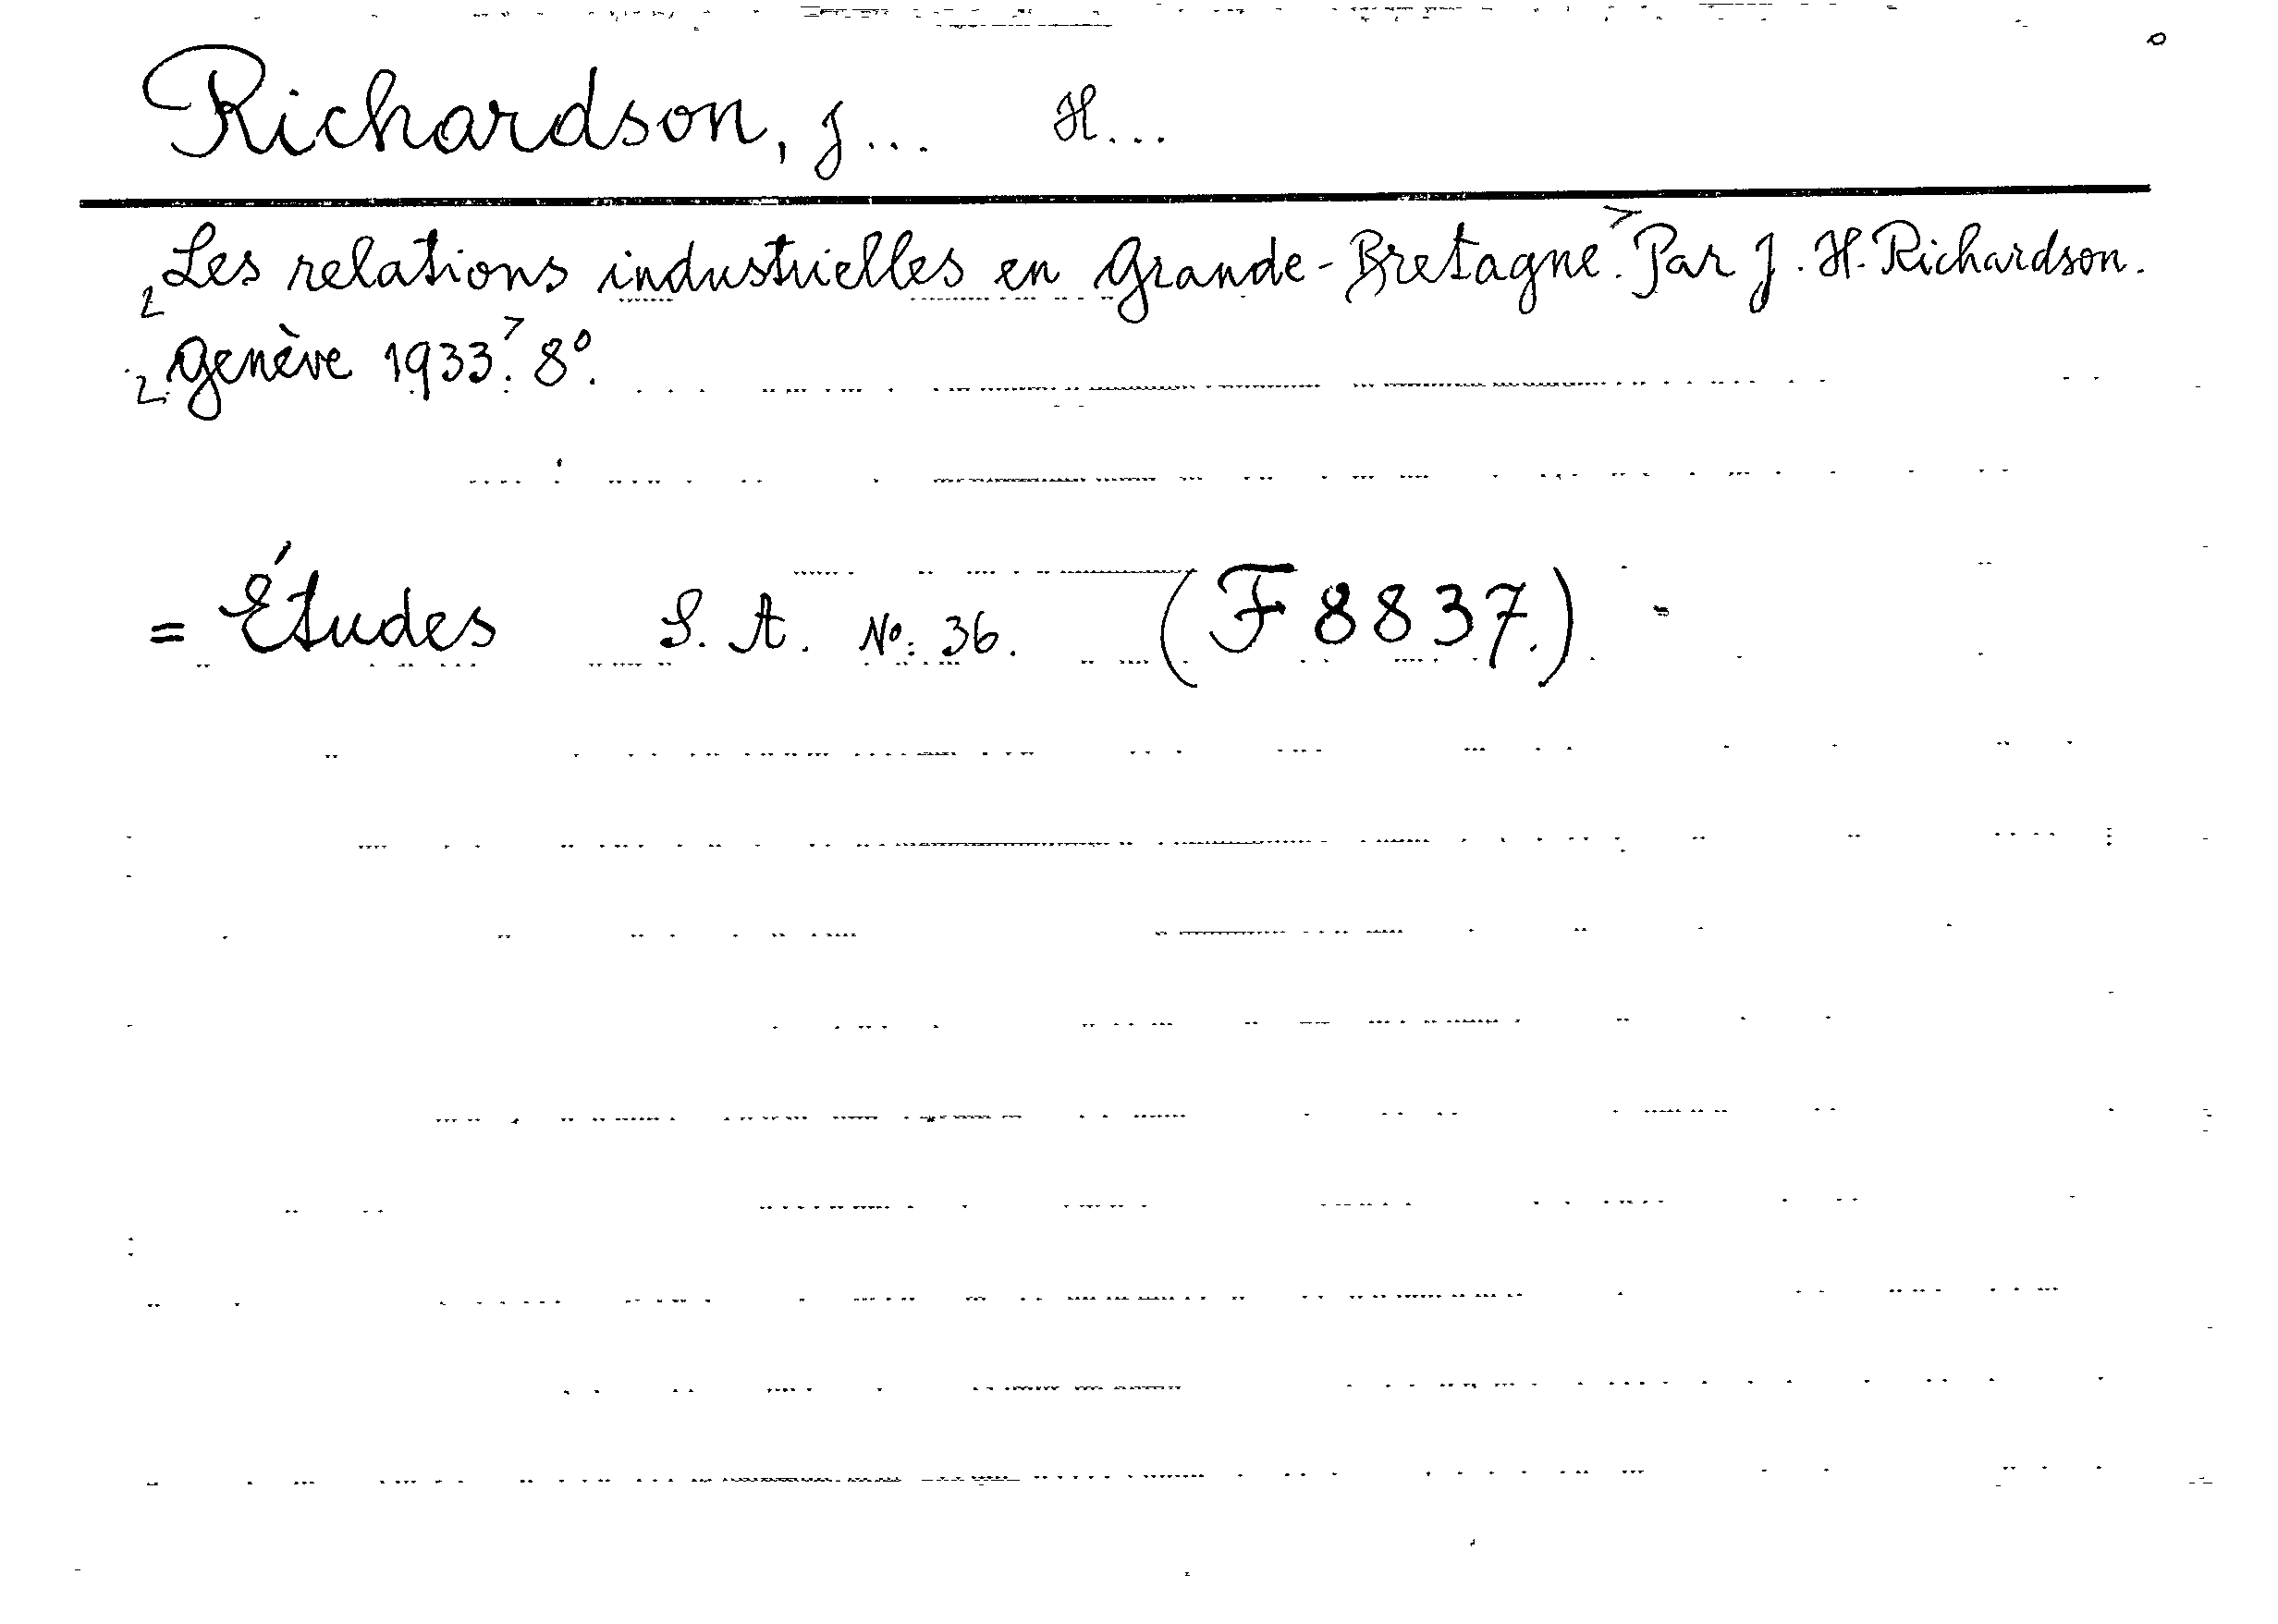 Richardson, J... H...
Les relations industrielles en Grande-Bretagne. Par J. H. Richardson.
Genève 1933. 8°.
= Études S. A. No. 36. (F 8837.)